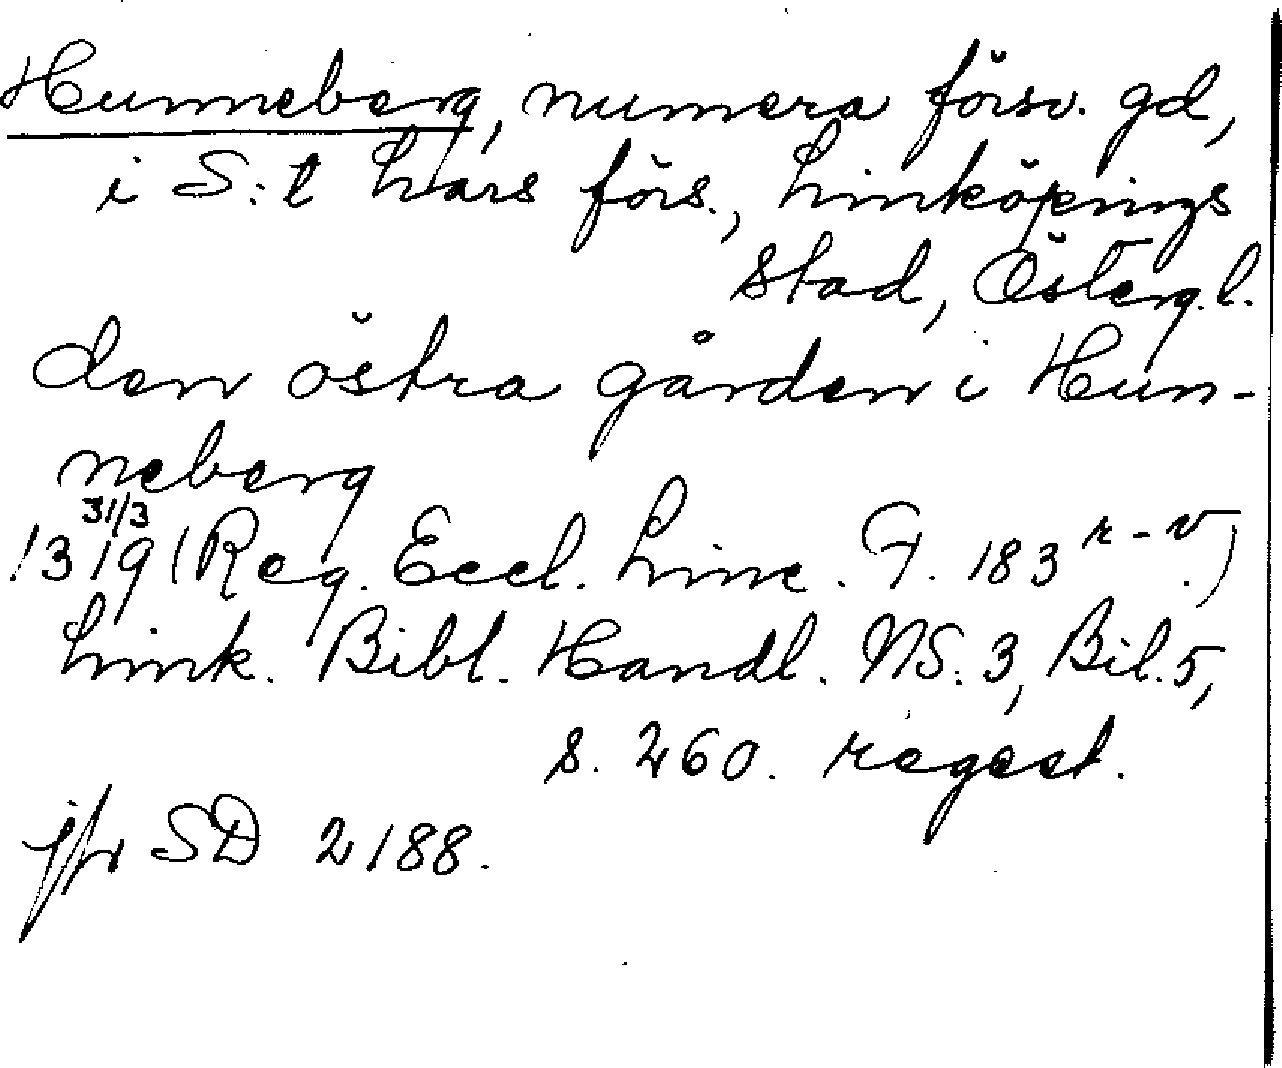 Hunneberg, numera försv. gd,
i S:t Lars förs., Linköpings
stad, Östergl.
den östra gården i Hun-
neberg
31/3
1319 (Reg. Eccl. Linc. F. 183 r-v.)
Link. Bibl. Handl. NS. 3, Bil. 5,
s. 260. regest.
jfr SD 2188.